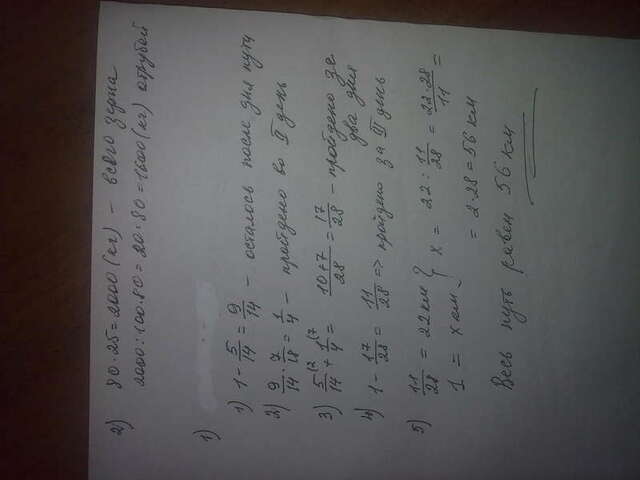 2) 80·25=2000(кг) – всего зерна
2000:100·80=20·80=1600(кг) отрубей
1)
1) 1 - 5/14 = 9/14 – осталось после дня пути
2) 9/14 · 7/18 = 1/4 – пройдено во II день
3) 5/14 + 1/4 = 10+7/28 = 17/28 – пройдено за два дня
4) 1 - 17/28 = 11/28 => пройдено за III день
5) 11/28 = 22 км } x = 22 : 11/28 = 22·28/11 =
1 = x км
= 2·28 = 56 км
Весь путь равен 56 км